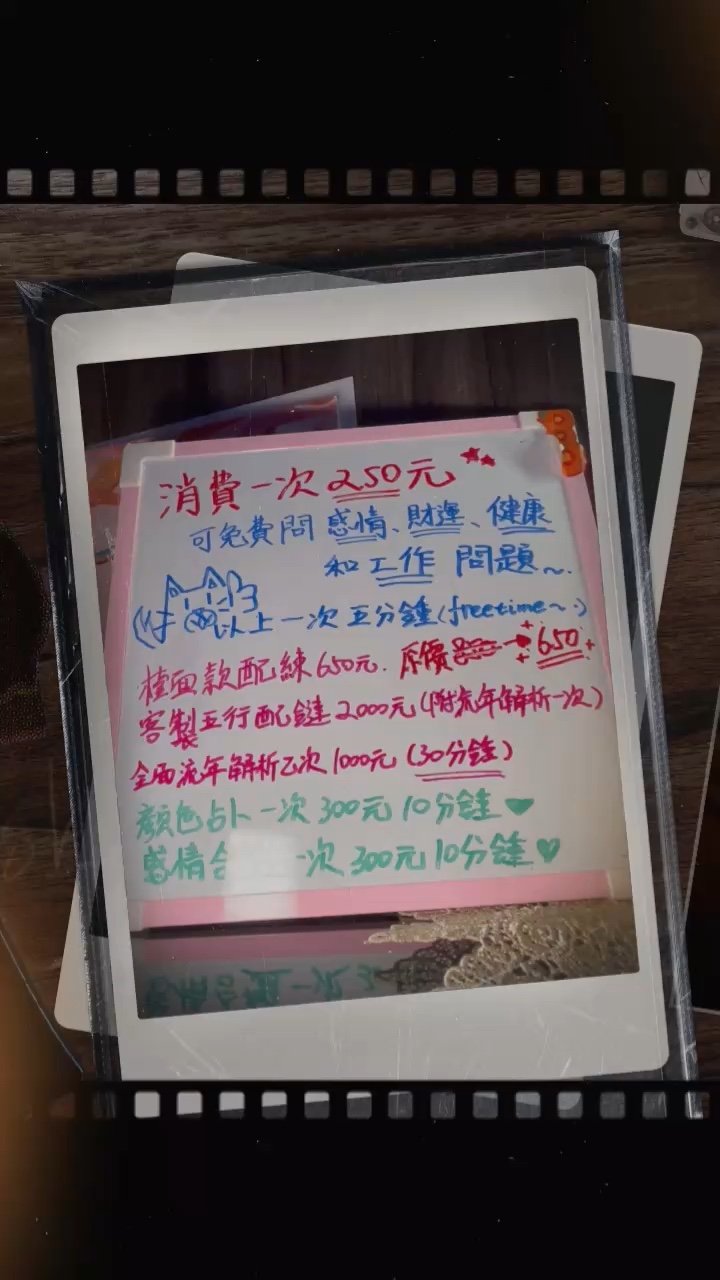 消費一次250元
可免費問感情、財運、健康
和工作 問題~.
以上一次五分鐘(freetime~)
檯面款配練650元. 原價 → 650
客製五行配鏈2000元(附流年解析一次)
全面流年解析乙次1000元(30分鐘)
顏色占卜一次300元10分鐘
感情合 一次300元10分鐘